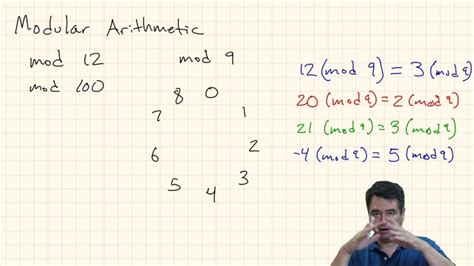 Modular Arithmetic
mod 12
mod 9
mod 100
12 (mod 9) = 3 (mod 9)
20 (mod 9) = 2 (mod 9)
21 (mod 9) = 3 (mod 9)
-4 (mod 9) = 5 (mod 9)
8 0
7 1
6 2
5 3
4